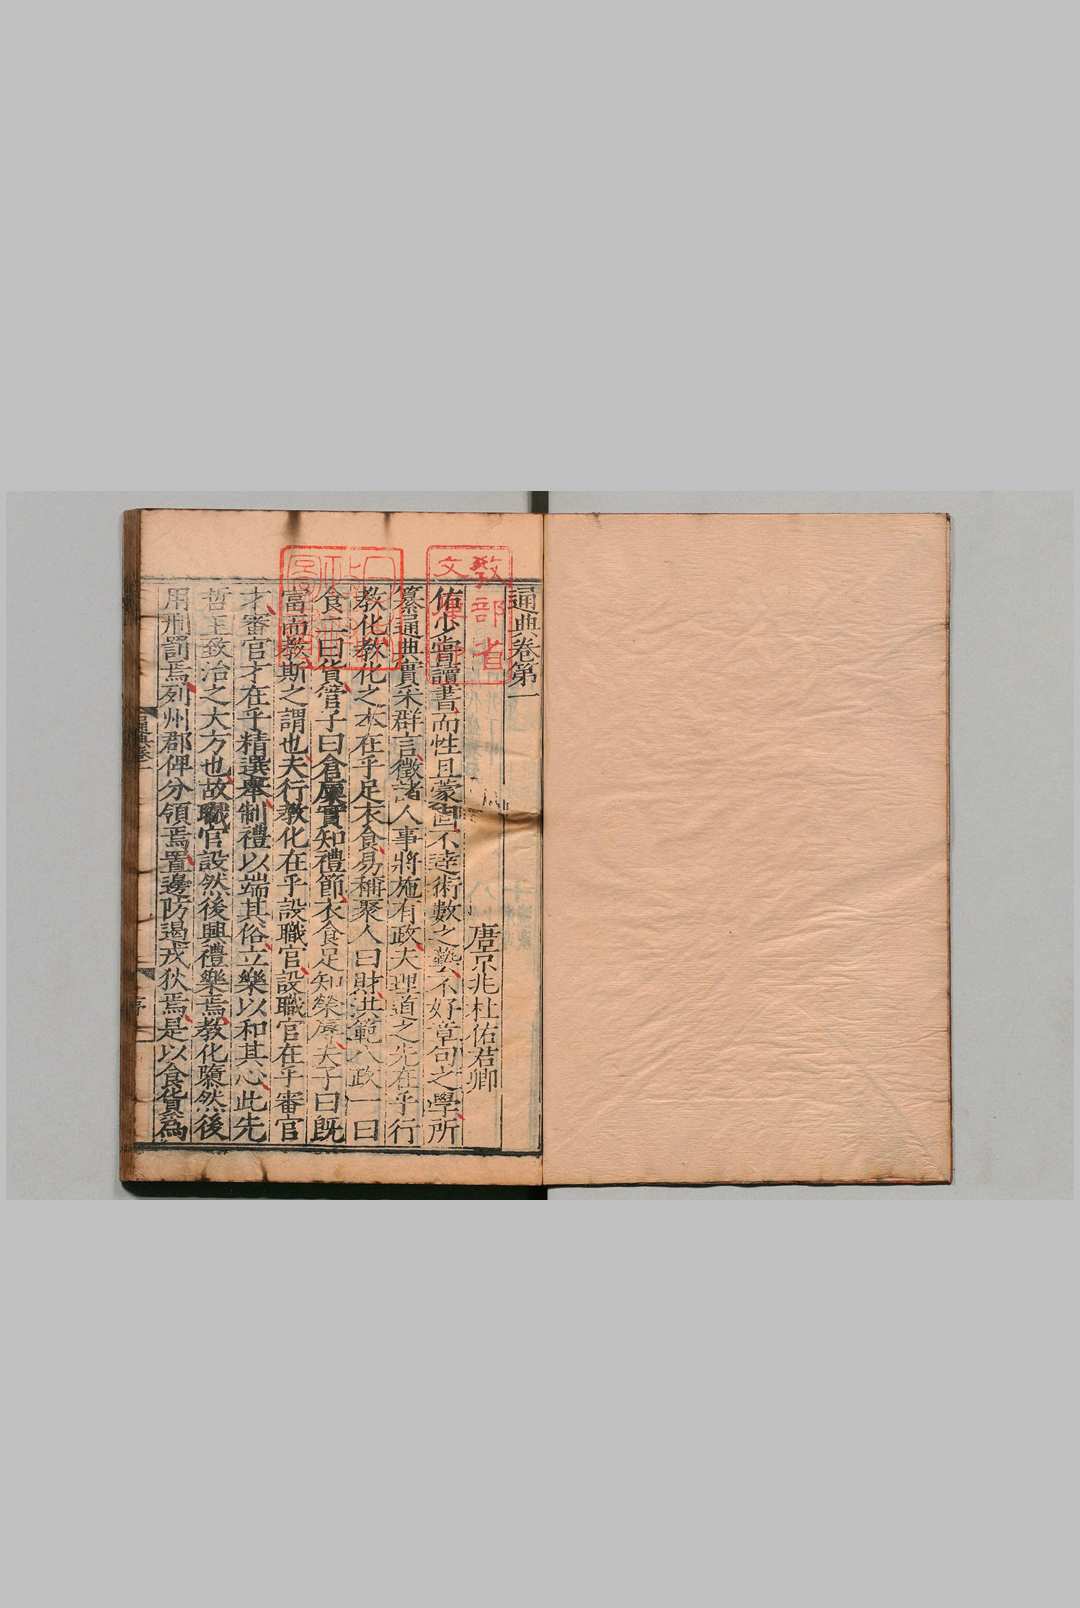 通典卷第一
唐京兆杜佑君卿
佑少嘗讀書而性且蒙固不達術數之藝不好章句之學所
纂通典實采群言徵諸人事將施有政夫理道之先在乎行
教化教化之本在乎足衣食易稱聚人曰財洪範八政一曰
食二曰貨管子曰倉廩實知禮節衣食足知榮辱夫子曰既
富而教斯之謂也夫行教化在乎設職官設職官在乎審官
才審官才在乎精選舉制禮以端其俗立樂以和其心此先
哲王致治之大方也故職官設然後興禮樂焉教化隳然後
用刑罰焉列州郡俾分領焉置邊防遏戎狄焉是以食貨為
通典卷一
序
教部省
文庫印